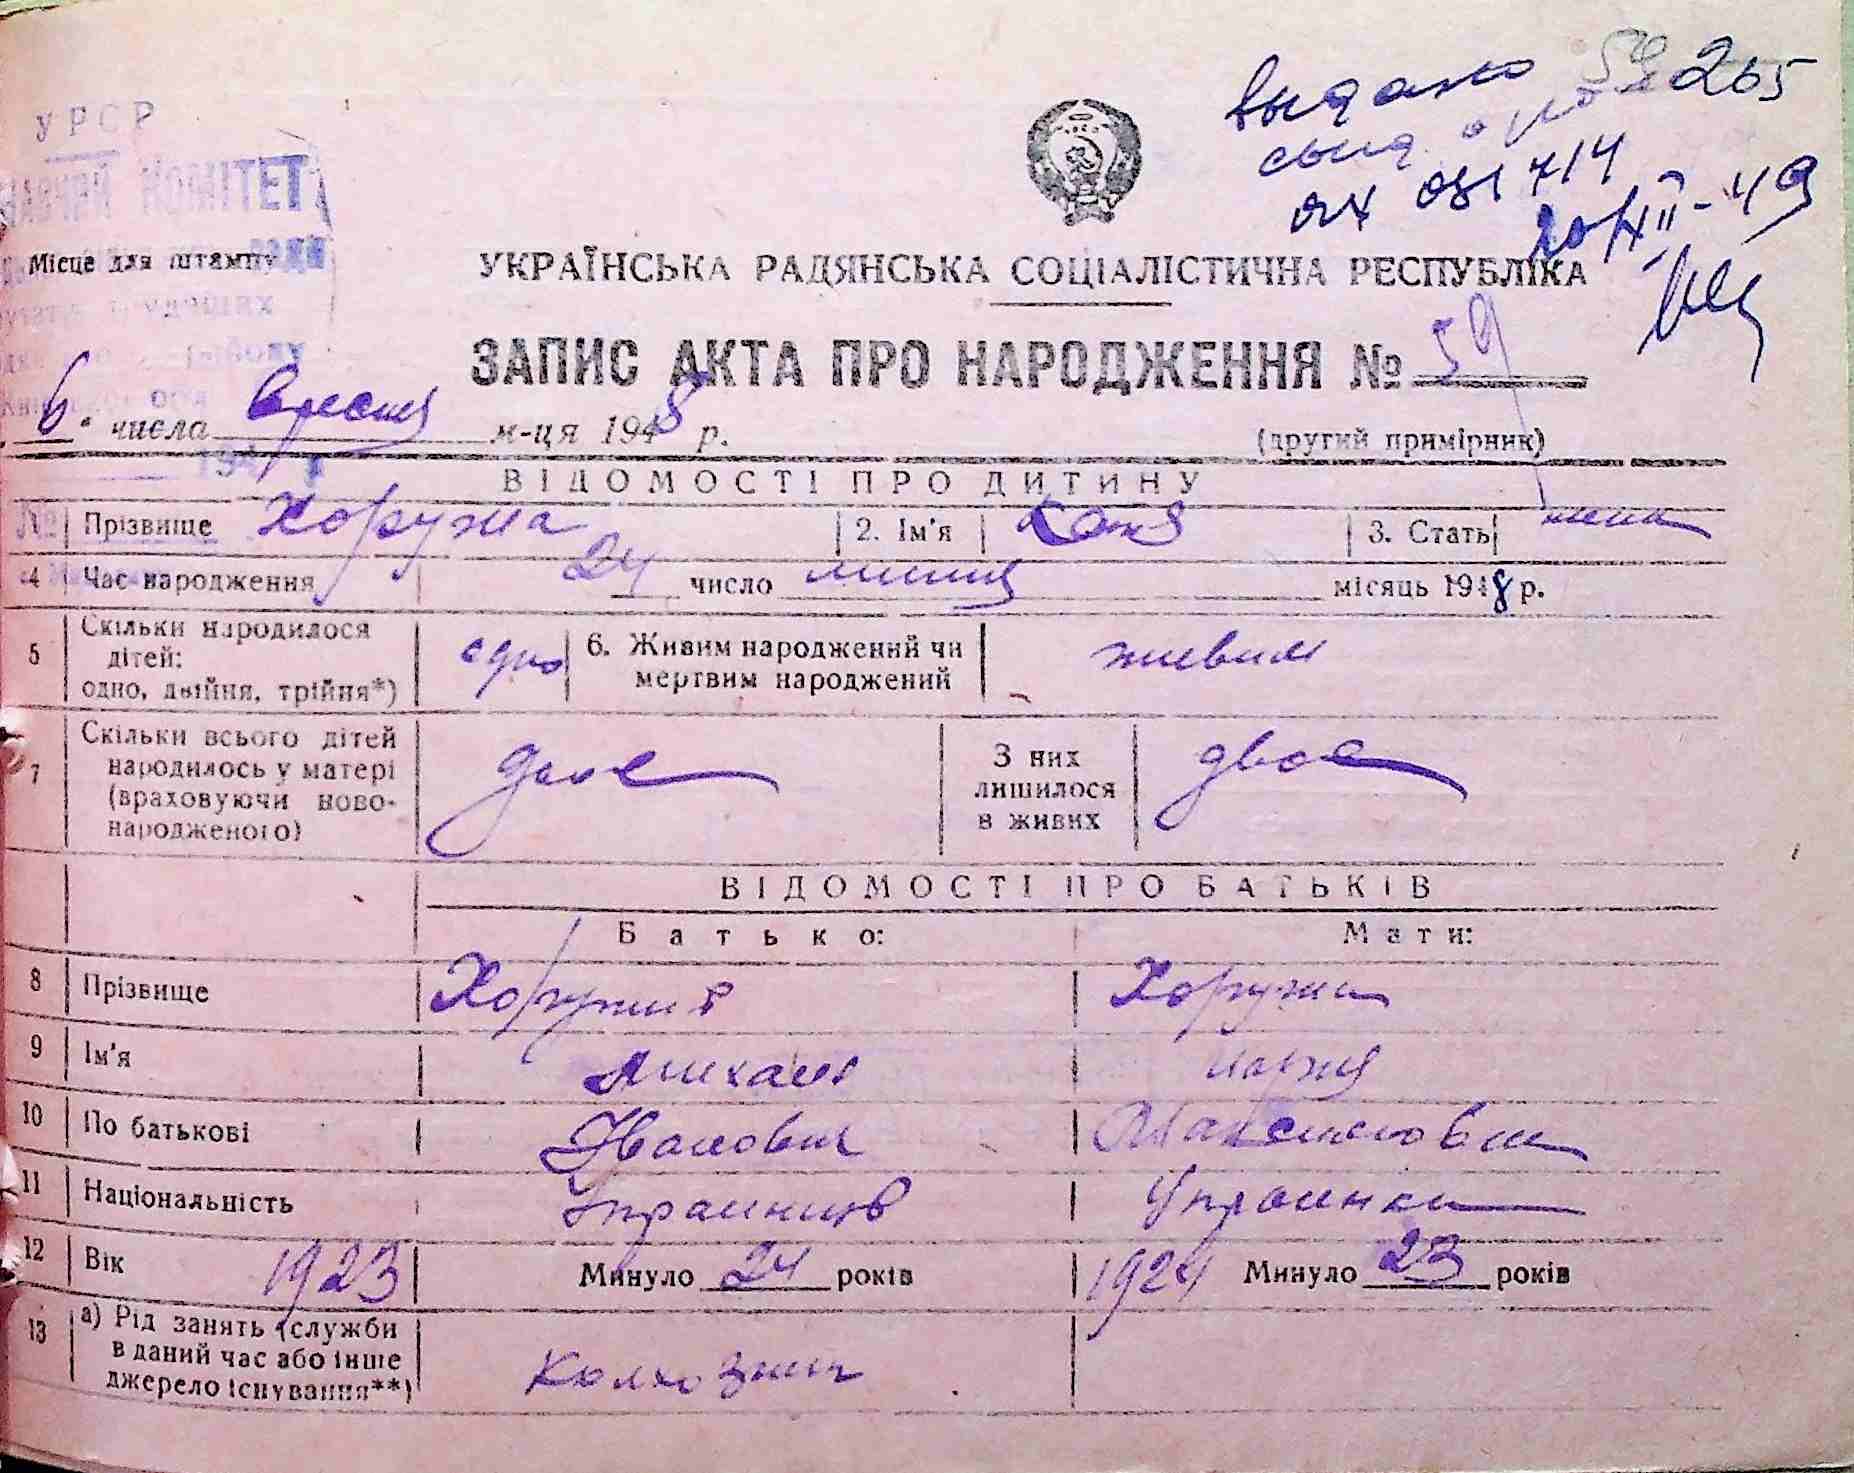 выдано 265
714
20/XII-49
УРСР
КОМІТЕТ
Місце для штампу
УКРАЇНСЬКА РАДЯНСЬКА СОЦІАЛІСТИЧНА РЕСПУБЛІКА
ЗАПИС АКТА ПРО НАРОДЖЕННЯ № 59
6 " числа Вресня м-ця 1948 р.
(другий примірник)
ВІДОМОСТІ ПРО ДИТИНУ
1 Прізвище Хоружа 2. Ім'я Катя 3. Стать жена
4 Час народження 24 число липня місяць 1948 р.
5 Скільки народилося дітей: одно, двійня, трійня*) одно 6. Живим народжений чи мертвим народжений живим
7 Скільки всього дітей народилось у матері (враховуючи ново-народженого) двое З них лишилося в живих двое
ВІДОМОСТІ ПРО БАТЬКІВ
Батько: Мати:
8 Прізвище Хоружий Хоружа
9 Ім'я Михаил Мария
10 По батькові Иванович Максимовна
11 Національність Украинцев Украинка
12 Вік 1923 Минуло 24 років 1924 Минуло 23 років
13 а) Рід занять (служби
в даний час або інше
джерело існування**) Колхозник